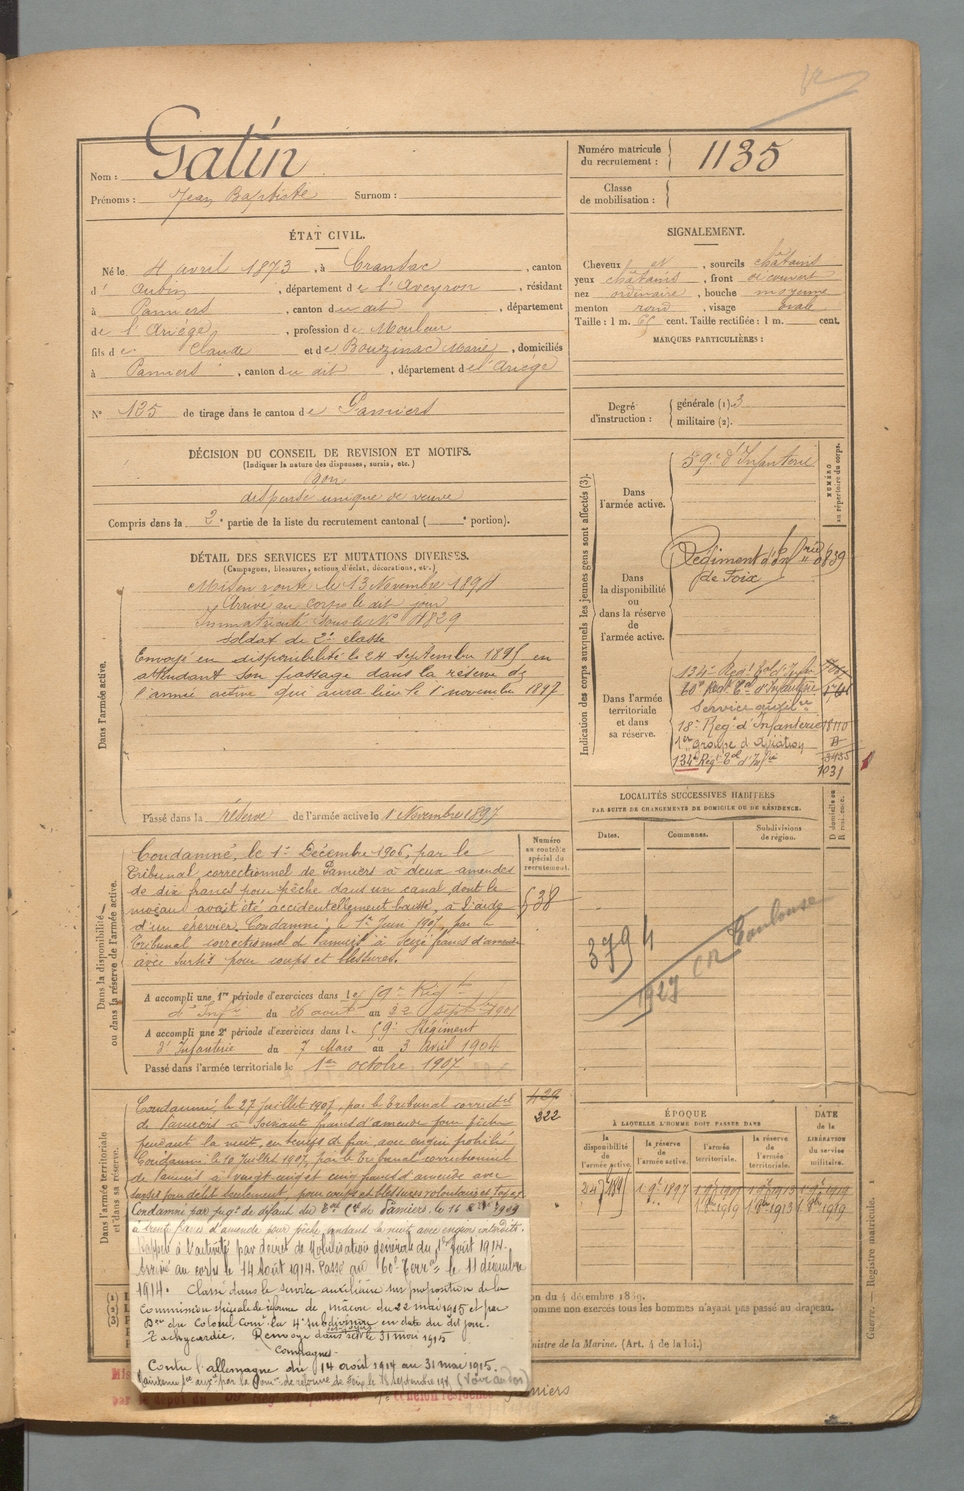 Nom : Gatin
Prénoms : Jean Baptiste Surnom :
Numéro matricule du recrutement : 1135
Classe de mobilisation :
ÉTAT CIVIL.
Né le 4 avril 1873, à Cransac, canton
d' Aubin, département de l'Aveyron, résidant
à Pamiers, canton du dit, département
de l'Ariège, profession de Mouleur
fils de Claude et de Bouzinac Marie, domiciliés
à Pamiers, canton du dit, département de l'Ariège
N° 135 de tirage dans le canton de Pamiers
SIGNALEMENT.
Cheveux et, sourcils châtains
yeux châtains, front découvert
nez ordinaire, bouche moyenne
menton rond, visage ovale
Taille : 1 m. 65 cent. Taille rectifiée : 1 m. cent.
MARQUES PARTICULIÈRES :
Degré d'instruction : générale (1) 3
militaire (2).
DÉCISION DU CONSEIL DE REVISION ET MOTIFS.
(Indiquer la nature des dispenses, sursis, etc.)
bon
dispensé unique de veuve
Compris dans la 2e partie de la liste du recrutement cantonal ( e portion).
DÉTAIL DES SERVICES ET MUTATIONS DIVERSES.
(Campagnes, blessures, actions d'éclat, décorations, etc.)
Dans l'armée active.
Mis en route le 13 Novembre 1894
Arrivé au corps le dit jour
Immatriculé sous le N° 1829
soldat de 2e classe
Envoyé en disponibilité le 24 septembre 1895 en
attendant son passage dans la réserve de
l'armée active qui aura lieu le 1er novembre 1897
Passé dans la réserve de l'armée active le 1 Novembre 1897
Indication des corps auxquels les jeunes gens sont affectés (3).
NUMÉRO au répertoire du corps.
Dans l'armée active.
59e d'Infanterie
Dans la disponibilité ou dans la réserve de l'armée active.
Régiment d'Infrie 0839
de Foix
Dans l'armée territoriale et dans sa réserve.
134e Regt Tal d'Infie
60e Regt Tal d'Infanterie
Service auxre
18e Regt d'Infanterie 18110
1er groupe d'Aviation
134e Regt Tal d'Infie 1031
LOCALITÉS SUCCESSIVES HABITÉES
PAR SUITE DE CHANGEMENTS DE DOMICILE OU DE RÉSIDENCE.
Dates. Communes. Subdivisions de région. D domicile ou R résidence.
3794
1927 CR Toulouse
Dans la disponibilité ou dans la réserve de l'armée active.
Numéro au contrôle spécial du recrutement.
638
Condamné, le 1er Décembre 1906, par le
Tribunal correctionnel de Pamiers à deux amendes
de dix francs pour pêche dans un canal, dont le
niveau avait été accidentellement baissé, à l'aide
d'un épervier. Condamné, le 1er Juin 1907, par le
Tribunal correctionnel de Pamiers à seize francs d'amende
avec sursis pour coups et blessures.
A accompli une 1re période d'exercices dans le 59e Regt
d'Infie du 26 août au 22 septbre 1901
A accompli une 2e période d'exercices dans l 59e Régiment
d'Infanterie du 7 Mars au 3 Avril 1904
Passé dans l'armée territoriale le 1er octobre 1907
Dans l'armée territoriale et dans sa réserve.
429
222
Condamné, le 27 Juillet 1907, par le tribunal correctel
de Pamiers à soixante francs d'amende pour pêche
pendant la nuit, en temps de frai, avec engin prohibé
Condamné, le 10 Juillet 1907, par le Tribunal correctionnel
de Pamiers à vingt-cinq francs d'amende avec
sursis pour délit seulement, pour coups et blessures volontaires
Condamné par jugt de défaut du Tal Cel de Pamiers, le 16 Xbre 1909
à trente francs d'amende pour pêche pendant la nuit avec engins interdits.
Rappelé à l'activité par décret de Mobilisation générale du 1er Août 1914.
Arrivé au corps le 14 Août 1914. Passé au 60e Terral le 11 décembre
1914. Classé dans le service auxiliaire sur proposition de la
commission spéciale de réforme de Macon du 22 mai 1915 et par
Don du Colonel Comt la 4e subdivision en date du dit jour.
Tachycardie. Renvoyé dans ses foyers le 31 mai 1915
Campagnes.
Contre l'allemagne du 14 août 1914 au 31 mai 1915.
Maintenu sce auxre par la Comon de réforme de Foix le septembre (Voir au dos)
ÉPOQUE
À LAQUELLE L'HOMME DOIT PASSER DANS
la disponibilité de l'armée active. la réserve de l'armée active. l'armée territoriale. la réserve de l'armée territoriale.
DATE de la LIBÉRATION du service militaire.
24 7bre 1895 1 9bre 1897 1 9bre 1907 1 9bre 1913 1 9bre 1919
1 8bre 1913 1 8bre 1919
on du 4 décembre 1889.
omme non exercés tous les hommes n'ayant pas passé au drapeau.
nistre de la Marine. (Art. 4 de la loi.)
Guerre. — Registre matricule. 1